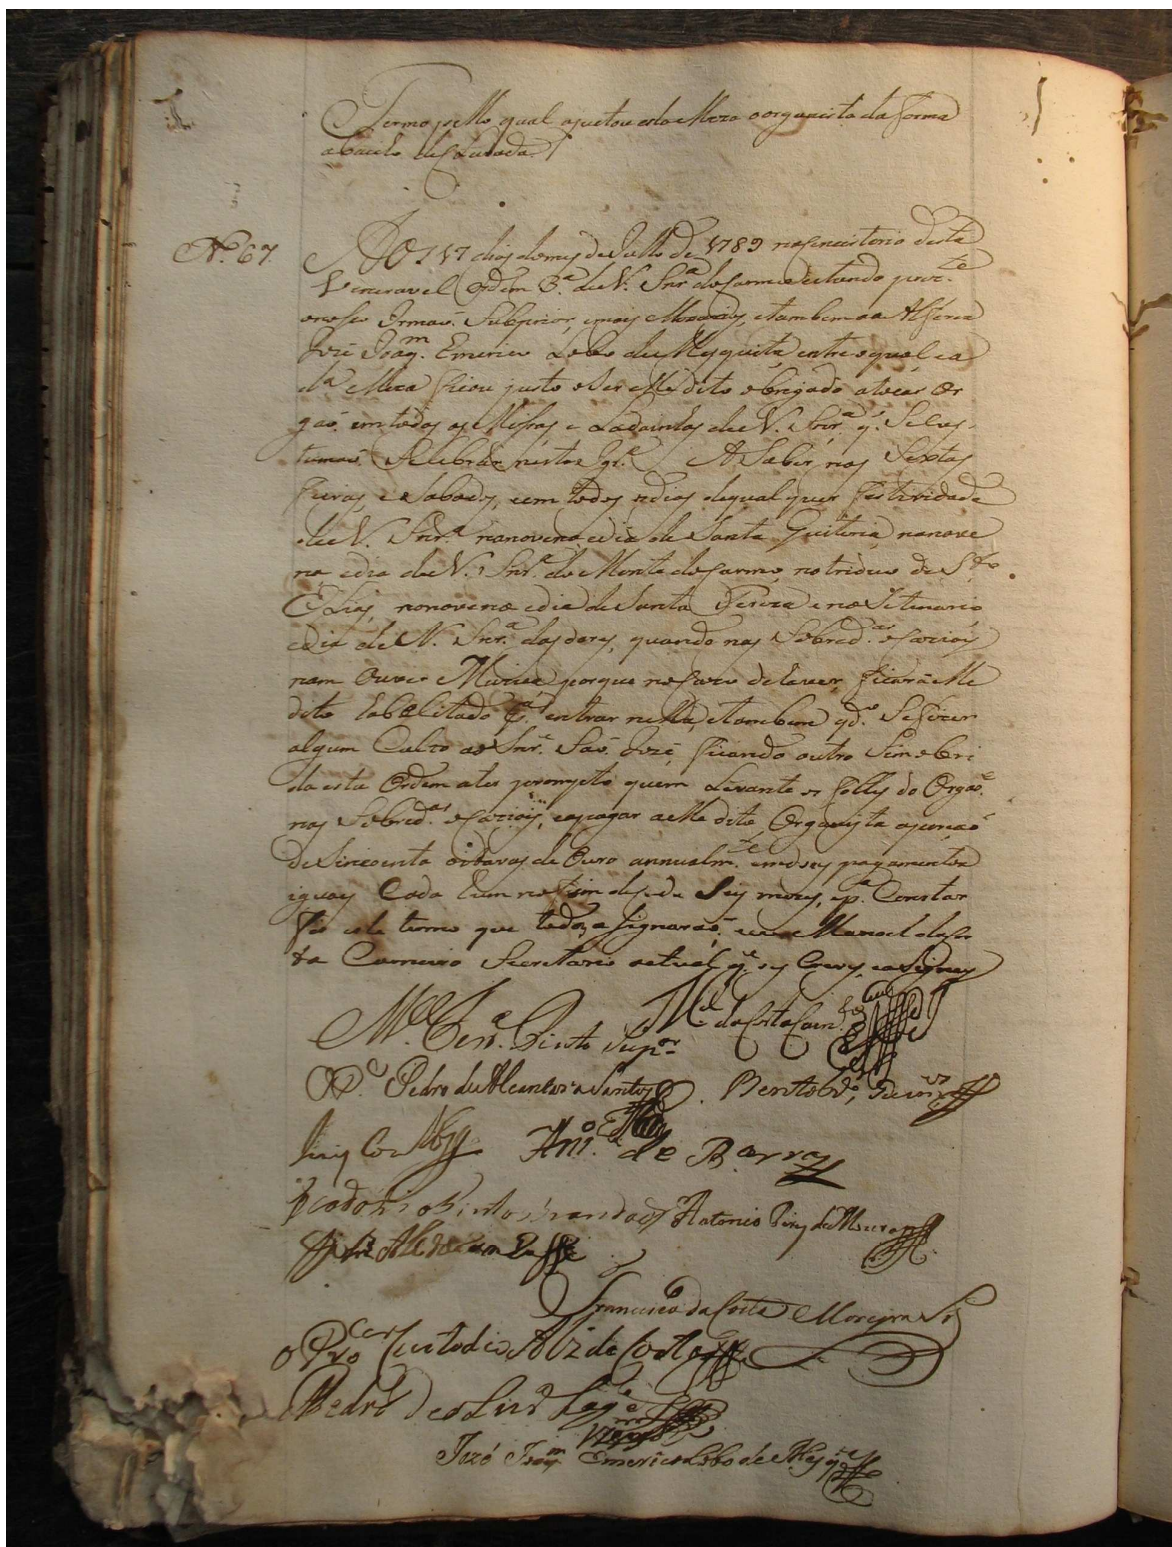 Termo pello qual ajustou esta Meza o organista da forma
abaicho declarada
Nº. 67.
Aos 17 dias do mes de Julho de 1789 no Consistorio desta
Veneravel Ordem 3.ª de N. Snr.ª do Carmo estando prez.te
o nosso Irmaõ Subprior, e mais Mezarios, e tambem o Alferes
Jozé Joaq.m Emerico Lobo de Mesquita, entre o qual, e a
d.ª Meza ficou justo o ser elle dito obrigado a tocar Or
gaõ em todas as Missas e Ladainhas de N. Snr.ª q. Se Cos-
tumaõ Selebrar nesta Igr.ª A Saber nas Sextas
feiras, e Sabados, e em todos os dias de qualquer festividade
de N. Snr.ª na novena e dia de Santa Quiteria, na nove
na e dia de N. Snr.ª do Monte do Carmo, no triduo de S.to
Elias, na novena e dia de Santa Tereza e no Setenario
e dia de N. Snr.ª das dores, quando nas Sobred.as ocazioẽs
nam Ouver Muzica porque no Cazo de a aver, ficará elle
dito habelitado p.ª entrar nella, e tambem qd.º Se fizer
algum Culto ao Snr. Saõ Jozé, ficando outro Sim obri
da esta Ordem a ter prompto quem Levante os folles do Orgaõ
nas Sobred.as ocazioẽs, e a pagar a elle dito Organista a pençaõ
de Sincoenta oitavas de Ouro annualm.te em dous pagamentos
iguais Cada hum no fim de cada Seis mezes, e p.ª Constar
fis este termo que todos asignaraõ, e eu Manoel da Cos
ta Carneiro Secretario actual q. o es Crevy, e asigney
M.el Fer.ª Pinto Sup.or M.el da Costa Carn.ro
O P.e Pedro de Alcantara Santos Bento
Ant.º de Barros
Teodozio Pinto Brandaõ Antonio Pires de Moura
Jozé
Francisco da Costa Moreyra S.
o Pro.cor Custodio Alz da Costa
Pedro
Jozé Joaq.m Emerico Lobo de Mesq.ta